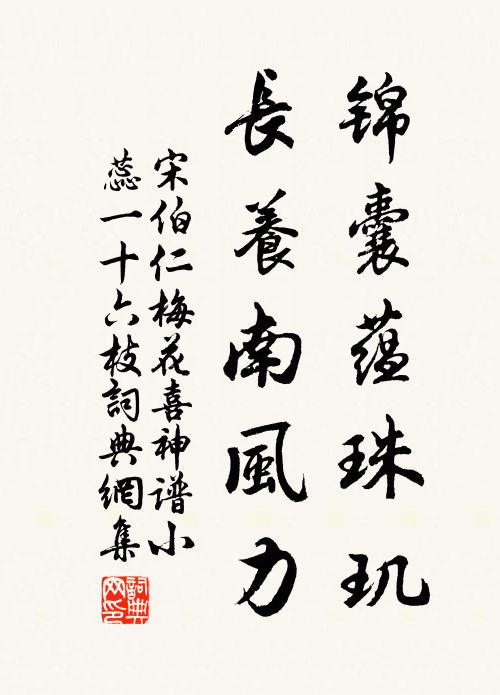 锦囊蕴珠玑
長養南風力
宋伯仁梅花喜神谱小
蕊一十六枝詞典網集
詞典網印